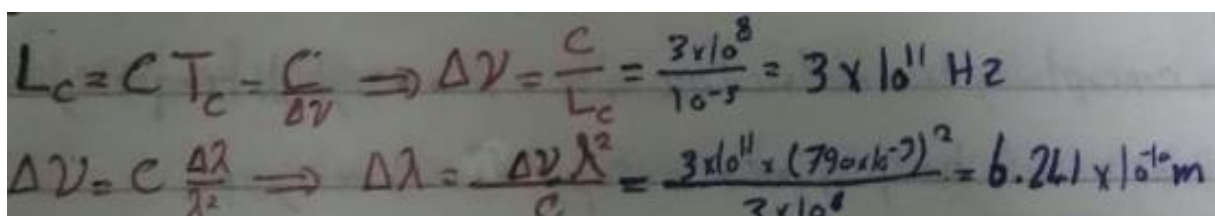 Lc = C Tc = C/Δν ⟹ Δν = C/Lc = 3x10^8/10^-3 = 3 x 10^11 Hz
Δν = C Δλ/λ^2 ⟹ Δλ = Δν λ^2/C = 3x10^11 x (790x10^-9)^2/3x10^8 = 6.241 x 10^-10 m